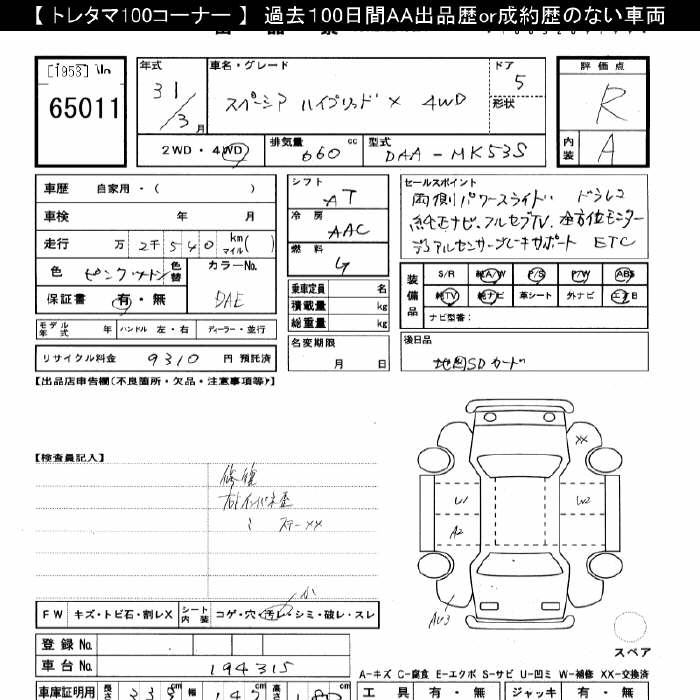 【 トレタマ100コーナー 】 過去100日間AA出品歴or成約歴のない車両
[1953]
65011
年式
31/3月
車名・グレード
スペーシア ハイブリッド X 4WD
ドア
5
形状
評価点
R
内装
A
2WD・4WD
排気量
660 cc
型式
DAA-MK53S
車歴 自家用・( )
車検 年 月
走行 万 2千540 km マイル( )
色 ピンクツートン 色替
カラーNo.
DAE
保証書 有・無
モデル年式 年 ハンドル 左・右 ディーラー・並行
リサイクル料金 9310 円 預託済
シフト
AT
冷房
AAC
燃料
G
乗車定員 名
積載量 kg
総重量 kg
名変期限
月 日
セールスポイント
両側パワースライド ドラレコ
純正ナビ、フルセグTV、全方位モニター
デュアルセンサーブレーキサポート ETC
装備品
S/R 純A/W P/S P/W ABS
純TV 純ナビ 革シート 外ナビ エアB
ナビ型番:
後日品
地図SDカード
【出品店申告欄(不良箇所・欠品・注意事項等)】
【検査員記入】
修復
XX
U1
U2
A2
FW キズ・トビ石・割レX シート内装 コゲ・穴・汚レ・シミ・破レ・スレ
小
スペア
登録No.
車台No. 194315
A-キズ C-腐食 E-エクボ S-サビ U-凹ミ W-補修 XX-交換済
車庫証明用 長さ 339 幅 147 高さ 180
工具 有・無 ジャッキ 有・無